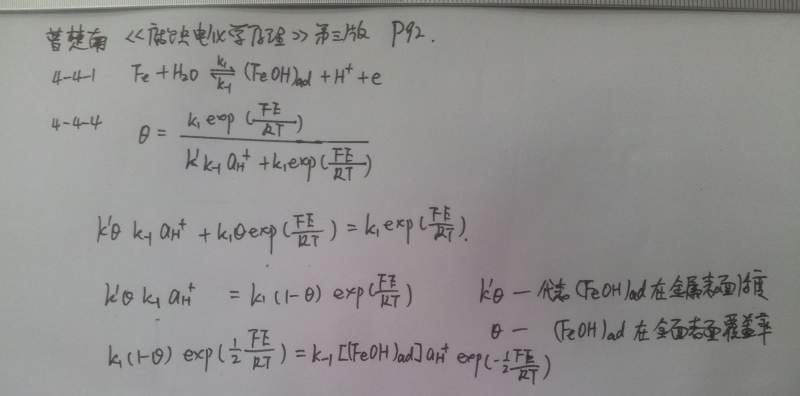 曹楚南 《腐蚀电化学原理》第三版 P92.
4-4-1 Fe + H₂O ⇌ (FeOH)ad + H⁺ + e
k₁
k₋₁
4-4-4 θ = k₁ exp(FE/RT) / (k' k₋₁ aH⁺ + k₁ exp(FE/RT))
k'θ k₋₁ aH⁺ + k₁θ exp(FE/RT) = k₁ exp(FE/RT).
k'θ k₁ aH⁺ = k₁(1-θ) exp(FE/RT) k'θ — 代表 (FeOH)ad 在金属表面浓度
θ — (FeOH)ad 在金面表面覆盖率
k₁(1-θ) exp(½ FE/RT) = k₋₁ [(FeOH)ad] aH⁺ exp(-½ FE/RT)